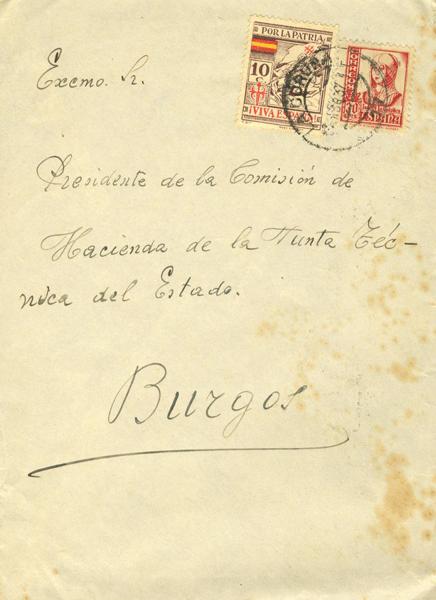 POR LA PATRIA
10
¡VIVA ESPAÑA!
30
ESPAÑA
CORUÑA
Excmo. Sr.
Presidente de la Comisión de
Hacienda de la Junta Téc-
nica del Estado.
Burgos